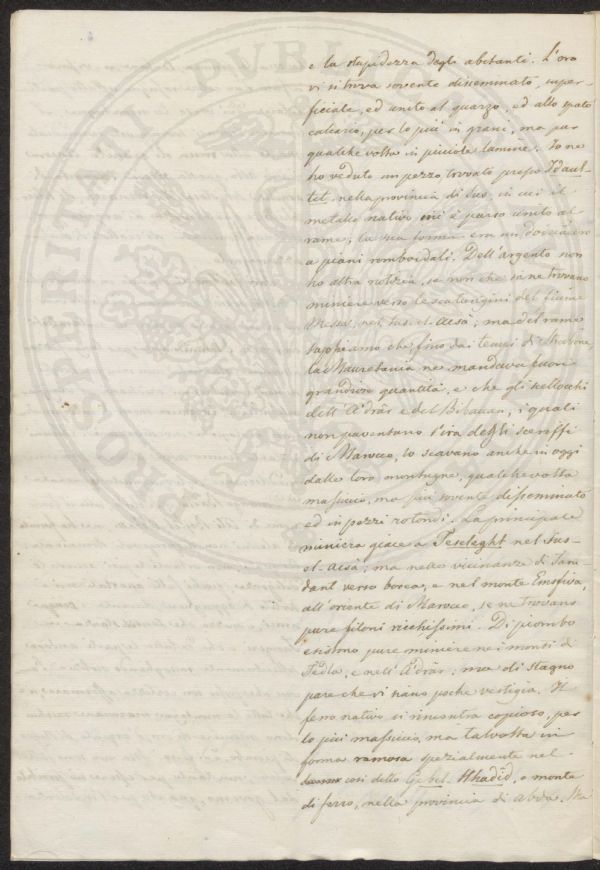 e la stupidezza degli abitanti. L'oro
vi si trova sovente disseminato, super-
ficiale, ed unito al quarzo, ed allo spato
calcario, per lo più in grani, ma pur
qualche volta in picciole lamine. Io ne
ho veduto un pezzo trovato presso Idaul-
tit, nella provincia di Sus, in cui il
metallo nativo mi è parso unito al
rame; la sua forma era un dodecaedro
a piani romboidali. Dell'argento non
ho altra notizia, se non che se ne trovano
miniere verso le scaturigini del fiume
Messa, nel Sus-el-Acsà; ma del rame
sappiamo che fino dai tempi di Strabone
la Mauretania ne mandava fuori
grandiose quantità, e che gli scellocchi
dell'Adràr e del Bibauan, i quali
non paventano l'ira degli sceriffi
di Marocco, lo scavano anche in oggi
dalle loro montagne, qualche volta
massiccio, ma più sovente disseminato
ed in pezzi rotondi. La principale
miniera giace a Teseleght nel Sus-
el-Acsà; ma nelle vicinanze di Taru
dant verso borea, e nel monte
all'oriente di Marocco, se ne trovano
pure filoni ricchissimi. Di piombo
esistono pure miniere nei monti di
Tedla, e nell'Adràr; ma di stagno
pare che vi siano poche vestigia. Il
ferro nativo si rincontra copioso, per
lo più massiccio, ma talvolta in
forma ramosa spezialmente nel
così detto Gebel-Hhadid, o monte
di ferro, nella provincia di Abda. Ma
PROSPERITATI PVBLICAE